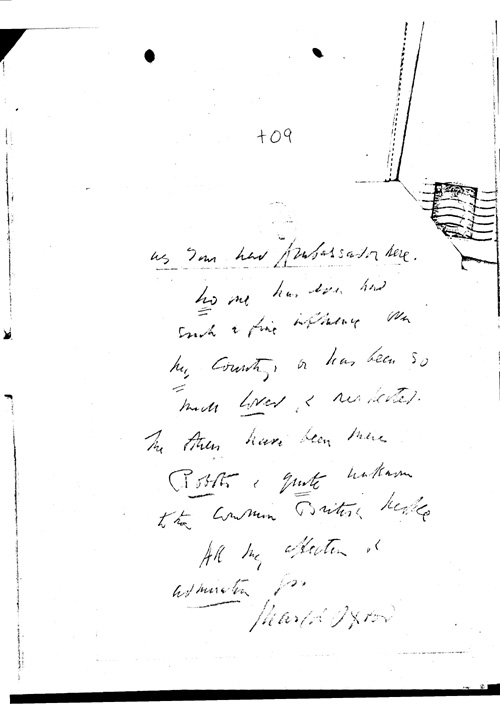 +09
as your new Ambassador here.
No one has ever had
such a fine influence over
my Country, or has been so
much loved & respected.
The others have been mere
Robots & quite unknown
to the common British people
All my affection &
admiration for